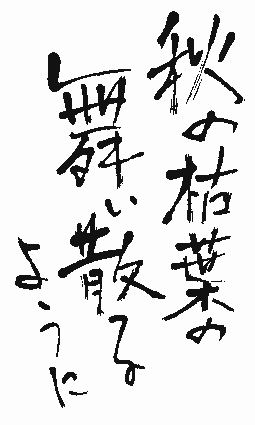 秋の枯葉の
舞い散る
ように